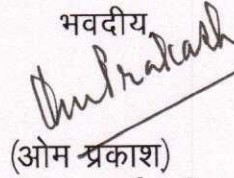 भवदीय
Om Prakash
(ओम प्रकाश)